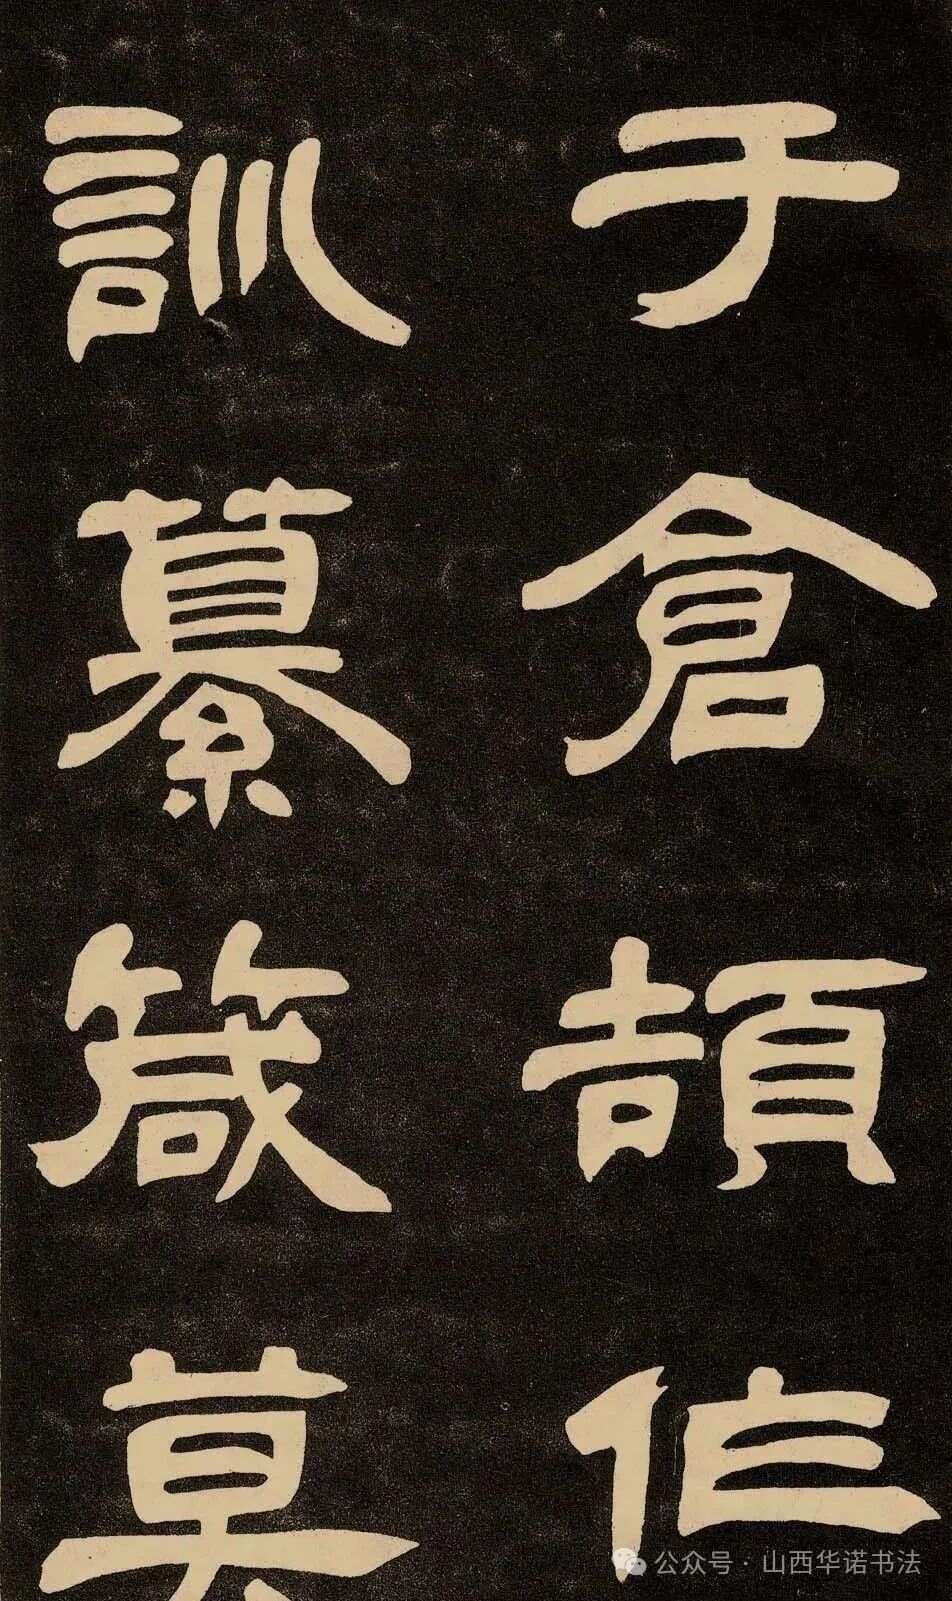 于倉頡作
訓纂箴莫
公众号·山西华诺书法